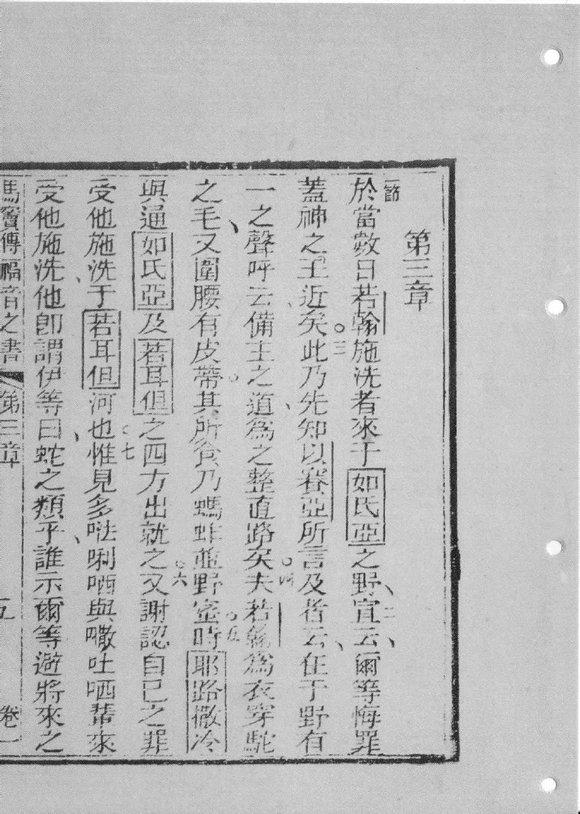 第三章
一節
於當數日若翰施洗者來于如氏亞之野宣云爾等悔罪
二
蓋神之王近矣此乃先知以賽亞所言及者云在于野有
三
一之聲呼云備主之道為之整直路矣夫若翰為衣穿駝
四
之毛又圍腰有皮帶其所食乃螞蚱並野蜜時耶路撒冷
五
與通如氏亞及若耳但之四方出就之又謝認自己之罪
六
受他施洗于若耳但河也惟見多𠵽唎哂與㘔吐哂輩來
七
受他施洗他即謂伊等曰蛇之類乎誰示爾等避將來之
馬竇傳福音之書 第三章 五 卷一